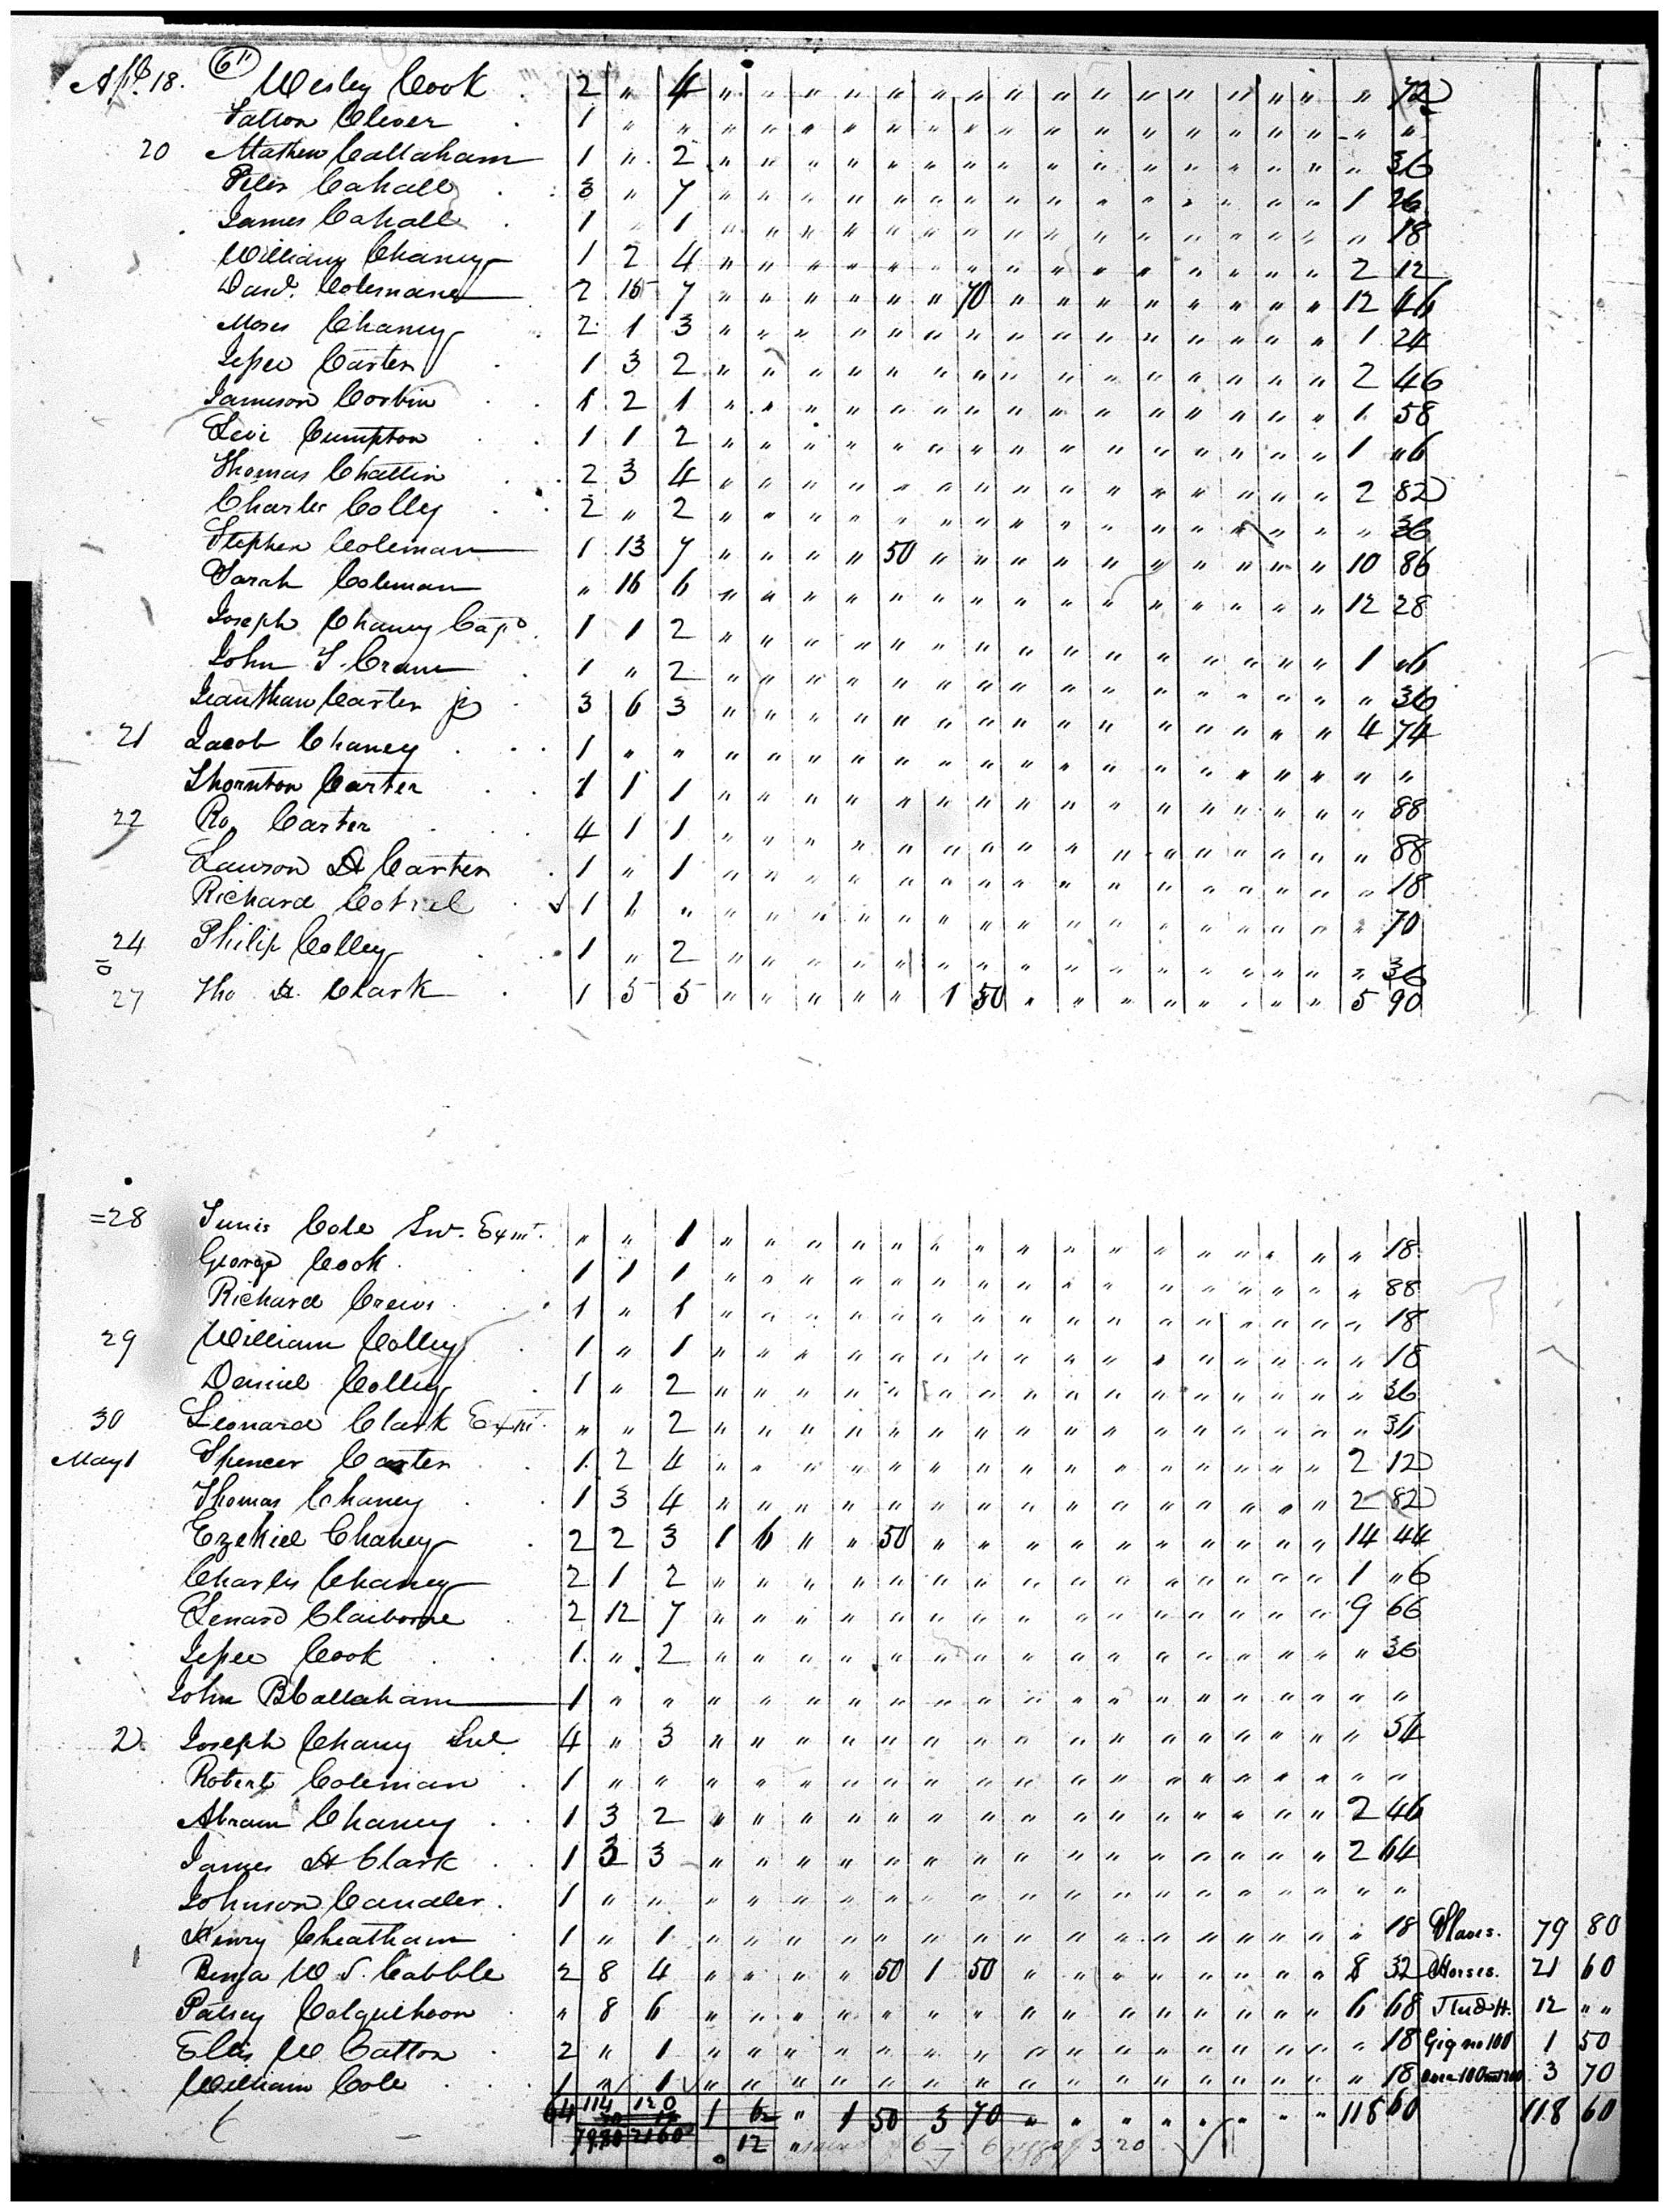 6"
Apl 18. Wesley Cook 2 " 4 " " " " " " " " " " " " " " " " 72
Patton Clever 1 " " " " " " " " " " " " " " " " " " "
20 Mathew Callaham 1 " 2 " " " " " " " " " " " " " " " " 36
Peter Cahall 3 " 7 " " " " " " " " " " " " " " " 1 26
James Cahall 1 " 1 " " " " " " " " " " " " " " " " 18
William Chaney 1 2 4 " " " " " " " " " " " " " " " 2 12
Danl. Coleman 2 15 7 " " " " " " 70 " " " " " " " " 12 46
Moses Chaney 2 1 3 " " " " " " " " " " " " " " " 1 24
Jessee Carter 1 3 2 " " " " " " " " " " " " " " " 2 46
Jameson Corbin 1 2 1 " " " " " " " " " " " " " " " 1 58
Levi Cumpton 1 1 2 " " " " " " " " " " " " " " " 1 "6
Thomas Chattin 2 3 4 " " " " " " " " " " " " " " " 2 82
Charles Colley 2 " 2 " " " " " " " " " " " " " " " " 36
Stephen Coleman 1 13 7 " " " " 50 " " " " " " " " " " 10 86
Sarah Coleman " 16 6 " " " " " " " " " " " " " " " 12 28
Joseph Chaney Capt 1 1 2 " " " " " " " " " " " " " " " 1 "6
John T. Crane 1 " 2 " " " " " " " " " " " " " " " " 36
Jeduthan Carter jr 3 6 3 " " " " " " " " " " " " " " " 4 74
21 Jacob Chaney 1 " " " " " " " " " " " " " " " " " " "
Thornton Carter 1 1 1 " " " " " " " " " " " " " " " " 88
22 Ro. Carter 4 1 1 " " " " " " " " " " " " " " " " 88
Lawson H Carter 1 " 1 " " " " " " " " " " " " " " " " 18
Richard Cotrel 1 1 " " " " " " " " " " " " " " " " " 70
24 Philip Colley 1 " 2 " " " " " " " " " " " " " " " " 36
27 Tho H. Clark 1 5 5 " " " " " 1 50 " " " " " " " " 5 90
=28 Tunis Cole Snr. Exmt. " " 1 " " " " " " " " " " " " " " " " 18
George Cook 1 1 1 " " " " " " " " " " " " " " " " 88
Richard Crews 1 " 1 " " " " " " " " " " " " " " " " 18
29 William Colley 1 " 1 " " " " " " " " " " " " " " " " 18
Daniel Colley 1 " 2 " " " " " " " " " " " " " " " " 36
30 Leonard Clark Exmt. " " 2 " " " " " " " " " " " " " " " " 36
May 1 Spencer Carter 1 2 4 " " " " " " " " " " " " " " " 2 12
Thomas Chaney 1 3 4 " " " " " " " " " " " " " " " 2 82
Ezekiel Chaney 2 2 3 1 6 " " 50 " " " " " " " " " " 14 44
Charles Chaney 2 1 2 " " " " " " " " " " " " " " " 1 "6
Lenard Claiborne 2 12 7 " " " " " " " " " " " " " " " 9 66
Jessee Cook 1 " 2 " " " " " " " " " " " " " " " " 36
John B Callaham 1 " " " " " " " " " " " " " " " " " " "
2 Joseph Chaney 4 " 3 " " " " " " " " " " " " " " " " 54
Robert Coleman 1 " " " " " " " " " " " " " " " " " " "
Abram Chaney 1 3 2 " " " " " " " " " " " " " " " 2 46
James H Clark 1 3 3 " " " " " " " " " " " " " " " 2 64
Johnson Candler 1 " " " " " " " " " " " " " " " " " " "
Henry Cheatham 1 " 1 " " " " " " " " " " " " " " " " 18 Slaves. 79 80
Benja W S. Cabble 2 8 4 " " " " 50 1 50 " " " " " " " " 8 32 Horses. 21 60
Patsey Colquehoon " 8 6 " " " " " " " " " " " " " " " 6 68 Stud H. 12 " "
Elias W Catton 2 " 1 " " " " " " " " " " " " " " " " 18 Gig no 100 1 50
William Cole 1 " 1 " " " " " " " " " " " " " " " " 18 3 70
64 114 120 1 6 " 1 50 3 70 " " " " " " " " 118 60 118 60
7980 2160 12